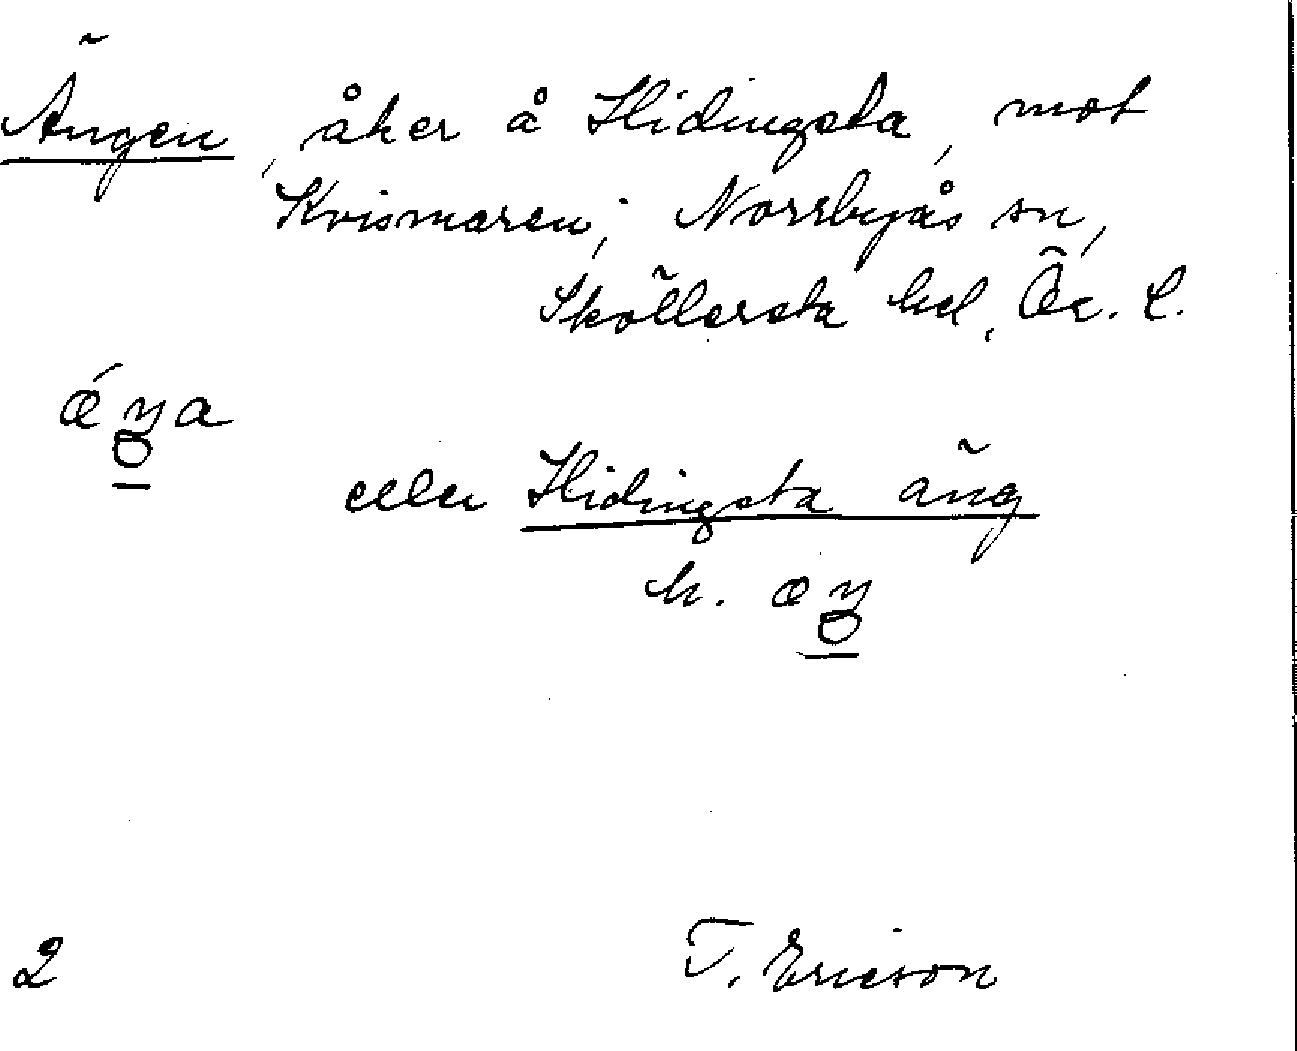 Ängen, åker å Hidingsta, mot
Kvismaren; Norrbyås sn,
Sköllersta hd, Ör. l.
ǽŋa
eller Hidingsta äng
h. æŋ
2 T. Ericson